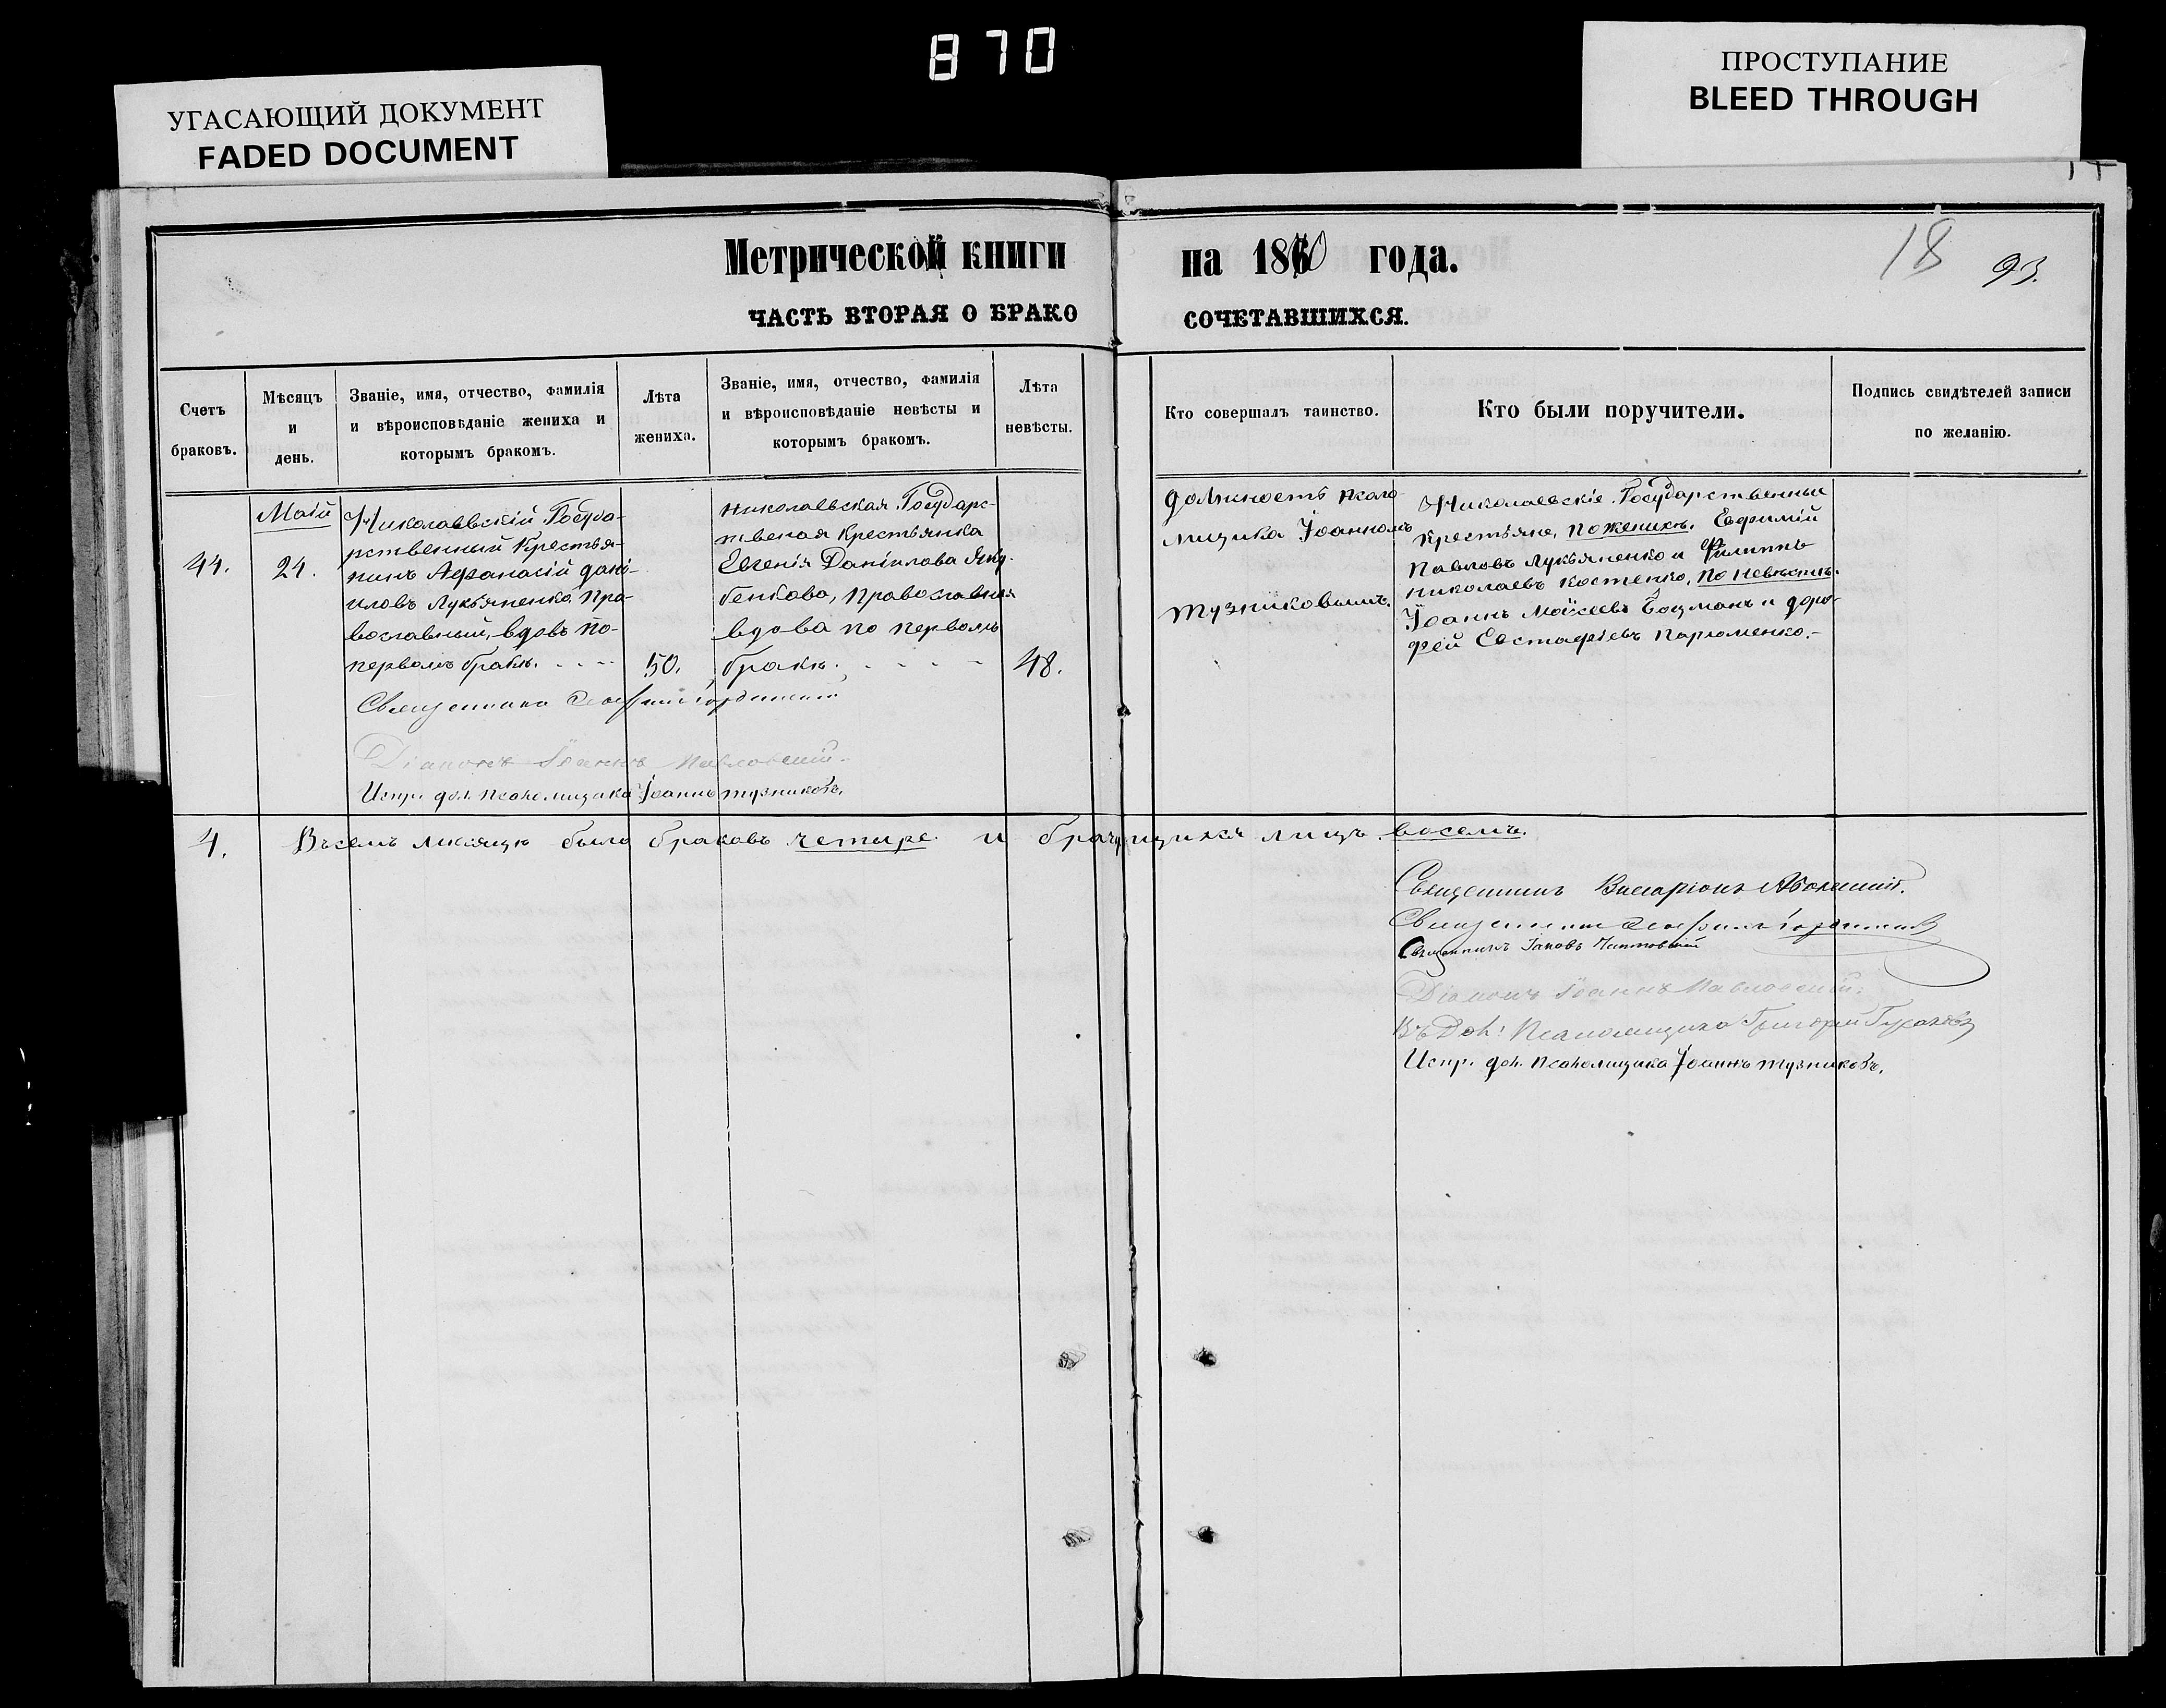 870
УГАСАЮЩИЙ ДОКУМЕНТ
FADED DOCUMENT
ПРОСТУПАНИЕ
BLEED THROUGH
Метрической книги на 1870 года.
18 93.
ЧАСТЬ ВТОРАЯ О БРАКОСОЧЕТАВШИХСЯ.
Счетъ
браковъ.
Мѣсяцъ
и
день.
Званіе, имя, отчество, фамилія
и вѣроисповѣданіе жениха и
которымъ бракомъ.
Лѣта
жениха.
Званіе, имя, отчество, фамилія
и вѣроисповѣданіе невѣсты и
которымъ бракомъ.
Лѣта
невѣсты.
Кто совершалъ таинство.
Кто были поручители.
Подпись свидѣтелей записи
по желанію.
44.
Маій
24.
Николаевскій Госуда-
рственный Крестья-
нинъ Афанасій дані-
иловъ Лукьяненко, Пра-
вославный, вдовъ по-
первомъ бракѣ.
50.
Николаевская Государс-
твеная Крестьянка
Евгенія Даніилова
бенкова, Православная
вдова по первомъ
бракѣ.
48.
должность псало-
мщика Іоанномъ
тузниковымъ.
Николаевскіе Государственные
Крестьяне, по женихѣ. Евфимій
Павловъ Лукьяненко и Филиппъ
Николаевъ Костенко, по невѣстѣ.
Іоаннъ Моѵсеевъ Боцманъ и доро-
фей Евстафіевъ Пархоменко.-
Священникъ
Діаконъ Іоаннъ Павловскій.
Испр. дол. Псаломщика Іоаннъ тузниковъ.
4. Въсемъ мѣсяцѣ было браковъ четыре и брачущихся лицъ восемь.
Священникъ Виссаріонъ
Священникъ
Священникъ Іаковъ
Діаконъ Іоаннъ Павловскій.
Въ Дол: Псаломщика Григорій Гусаковъ
Испр. дол. Псаломщика Іоаннъ тузниковъ.